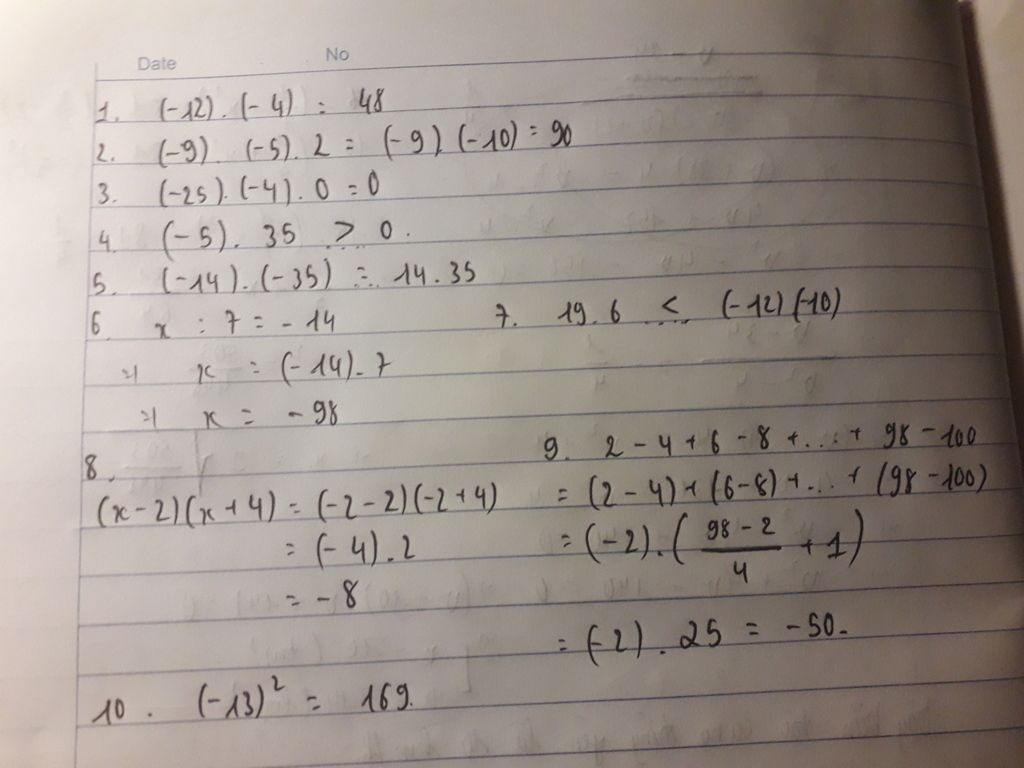 Date No
1. (-12). (-4) = 48
2. (-9) (-5). 2 = (-9) (-10) = 90
3. (-25). (-4). 0 = 0
4. (-5). 35 > 0.
5. (-14). (-35) = 14.35
6 x : 7 = -14
=> x = (-14). 7
=> x = -98
7. 19.6 < (-12)(-10)
8.
(x-2)(x+4) = (-2-2)(-2+4)
= (-4). 2
= -8
9. 2 - 4 + 6 - 8 + ... + 98 - 100
= (2-4) + (6-8) + ... + (98-100)
= (-2). ( \frac{98-2}{4} + 1 )
= (-2). 25 = -50.
10. (-13)² = 169.